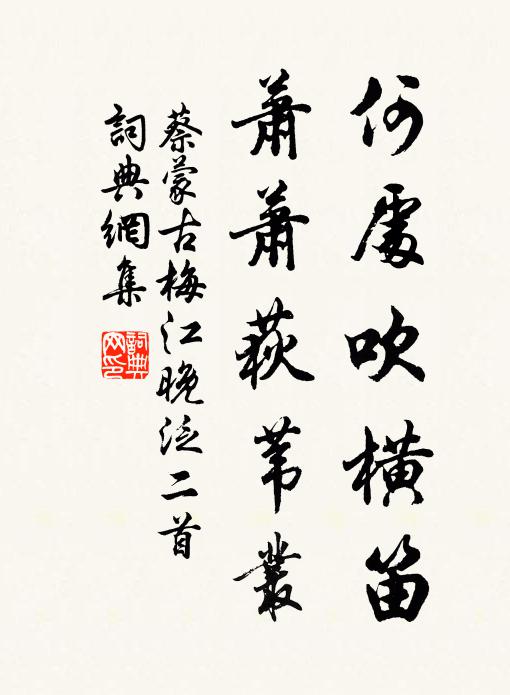 何處吹橫笛
蕭蕭荻苇叢
蔡蒙古梅江晚泛二首
詞典網集
詞典網印